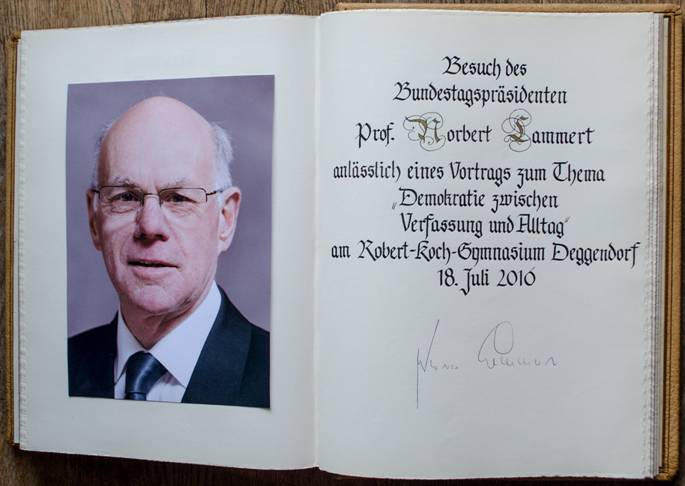 Besuch des
Bundestagspräsidenten
Prof. Norbert Lammert
anlässlich eines Vortrags zum Thema
„Demokratie zwischen
Verfassung und Alltag"
am Robert-Koch-Gymnasium Deggendorf
18. Juli 2016
Lammert